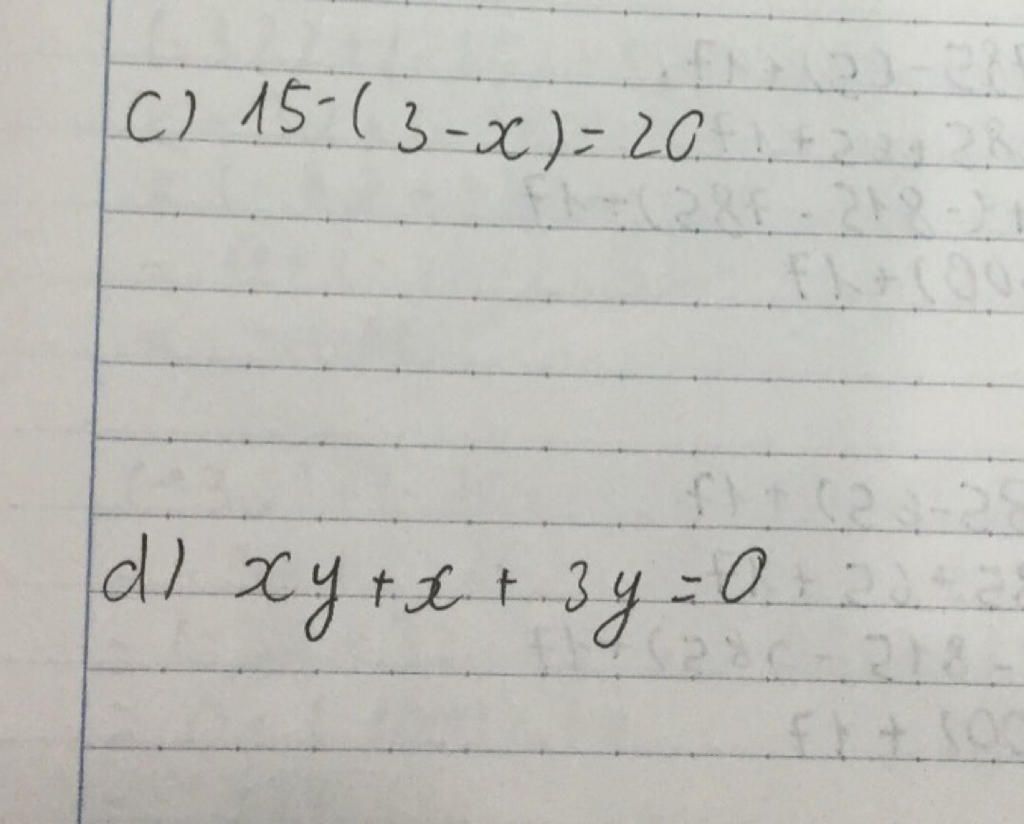 c) 15-(3-x)=20
d) xy+x+3y=0